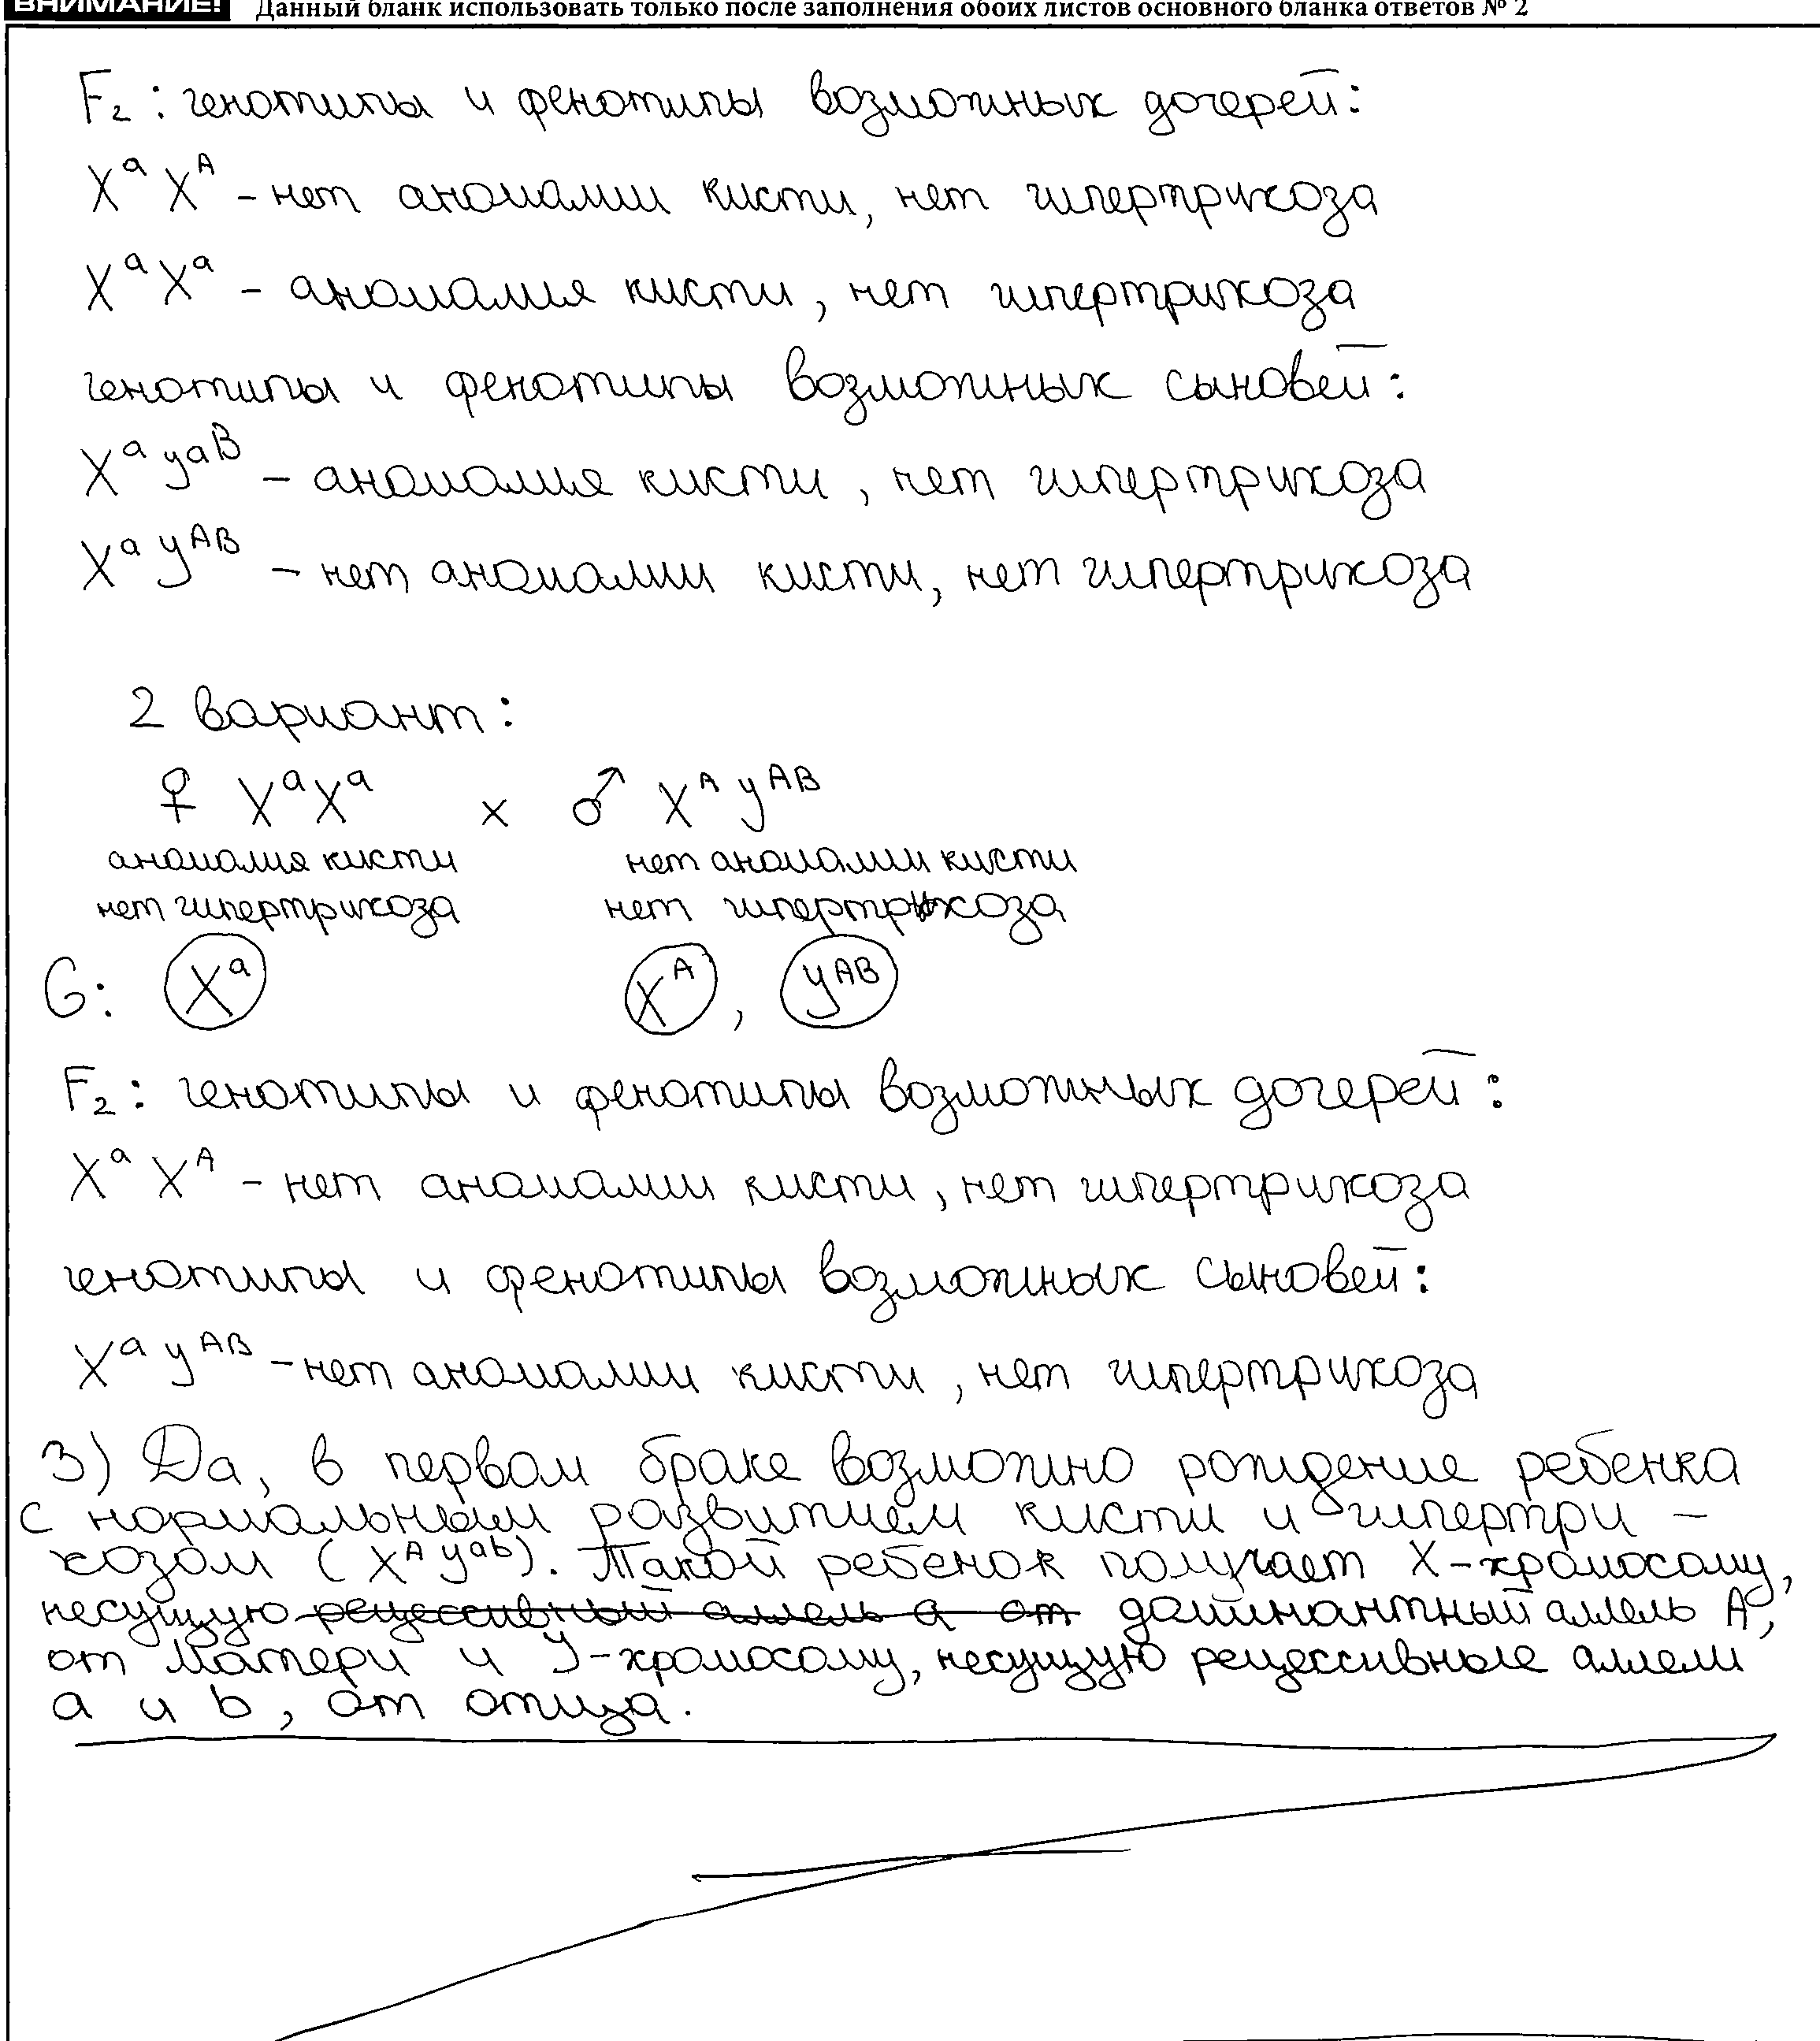 ВНИМАНИЕ! Данный бланк использовать только после заполнения обоих листов основного бланка ответов № 2
F₂: генотипы и фенотипы возможных дочерей:
XᵃXᴬ - нет аномалии кисти, нет гипертрихоза
XᵃXᵃ - аномалия кисти, нет гипертрихоза
генотипы и фенотипы возможных сыновей:
Xᵃyᵃᴮ - аномалия кисти, нет гипертрихоза
Xᵃyᴬᴮ - нет аномалии кисти, нет гипертрихоза
2 вариант:
♀ XᵃXᵃ x ♂ Xᴬyᴬᴮ
аномалия кисти нет аномалии кисти
нет гипертрихоза нет гипертрихоза
G: Xᵃ Xᴬ, yᴬᴮ
F₂: генотипы и фенотипы возможных дочерей:
XᵃXᴬ - нет аномалии кисти, нет гипертрихоза
генотипы и фенотипы возможных сыновей:
Xᵃyᴬᴮ - нет аномалии кисти, нет гипертрихоза
3) Да, в первом браке возможно рождение ребенка
с нормальным развитием кисти и гипертри-
хозом (Xᴬyᵃᵇ). Такой ребенок получает X-хромосому,
несущую рецессивный аллель а от доминантный аллель А,
от матери и У-хромосому, несущую рецессивные аллели
а и b, от отца.